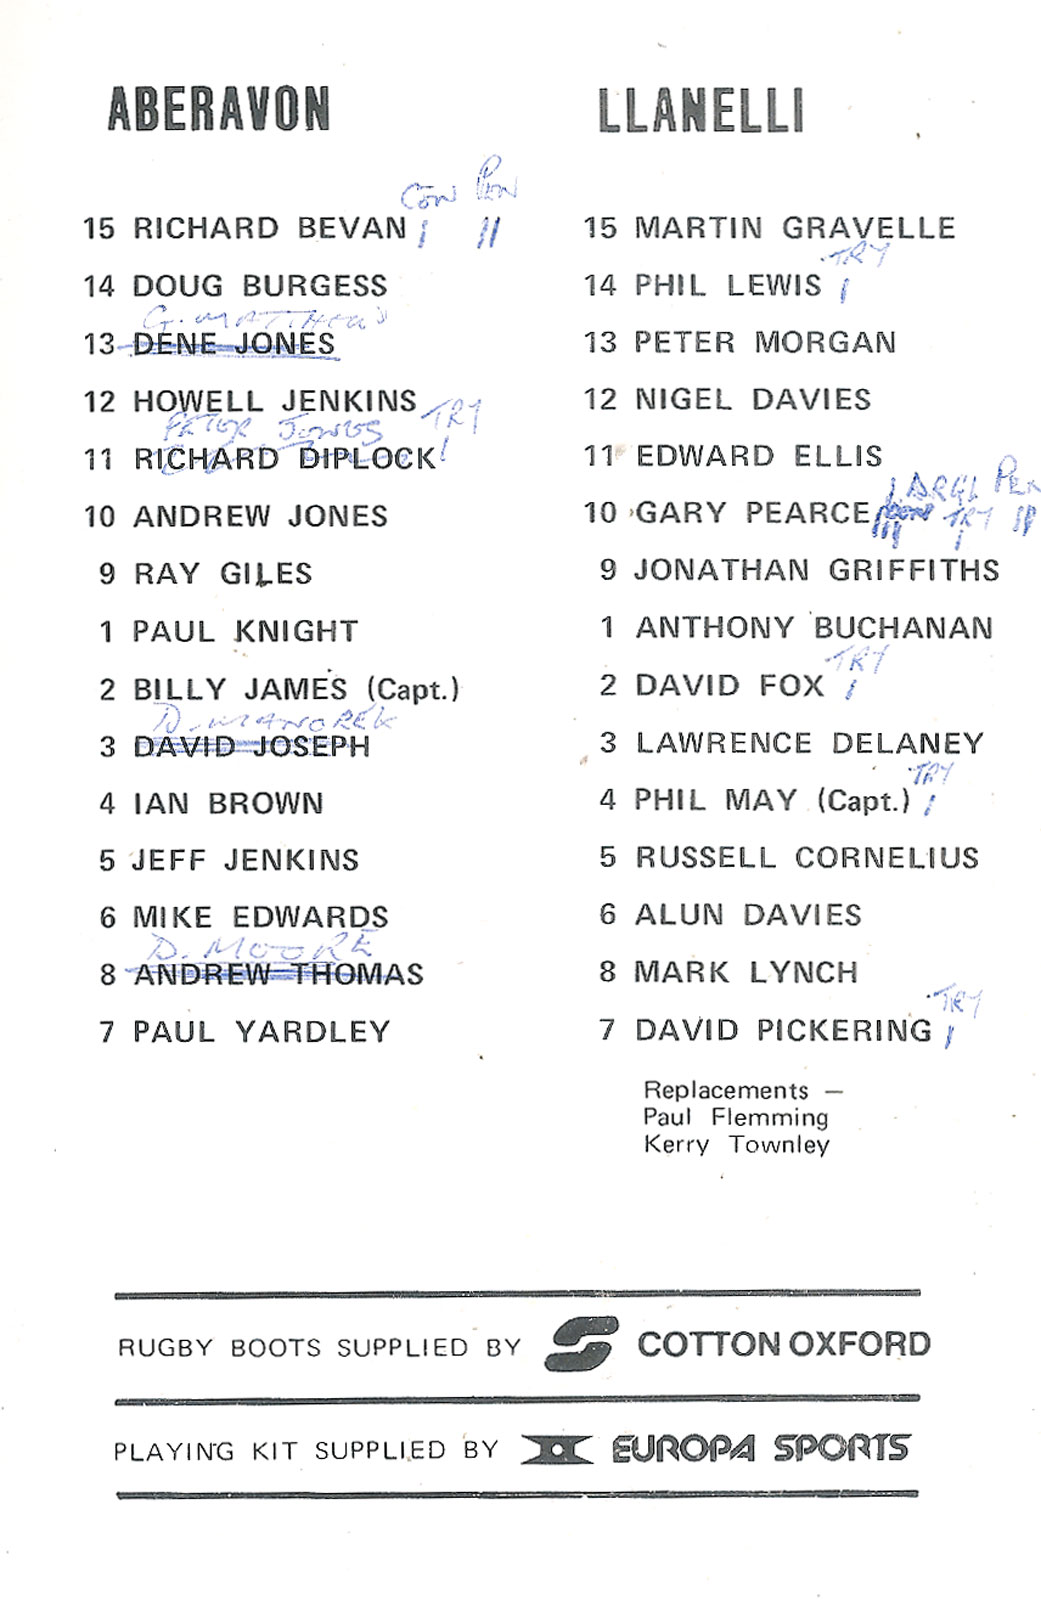 ABERAVON
Con Pen
15 RICHARD BEVAN
14 DOUG BURGESS
G. MATTHEWS
13 DENE JONES
12 HOWELL JENKINS
PETER JONES TRY
11 RICHARD DIPLOCK
10 ANDREW JONES
9 RAY GILES
1 PAUL KNIGHT
2 BILLY JAMES (Capt.)
3 DAVID JOSEPH
4 IAN BROWN
5 JEFF JENKINS
6 MIKE EDWARDS
D. MOORE
8 ANDREW THOMAS
7 PAUL YARDLEY
LLANELLI
15 MARTIN GRAVELLE
TRY
14 PHIL LEWIS
13 PETER MORGAN
12 NIGEL DAVIES
11 EDWARD ELLIS
PEN
10 GARY PEARCE TRY
9 JONATHAN GRIFFITHS
1 ANTHONY BUCHANAN
TRY
2 DAVID FOX
3 LAWRENCE DELANEY
TRY
4 PHIL MAY (Capt.)
5 RUSSELL CORNELIUS
6 ALUN DAVIES
8 MARK LYNCH
TRY
7 DAVID PICKERING
Replacements —
Paul Flemming
Kerry Townley
RUGBY BOOTS SUPPLIED BY COTTON OXFORD
PLAYING KIT SUPPLIED BY EUROPA SPORTS